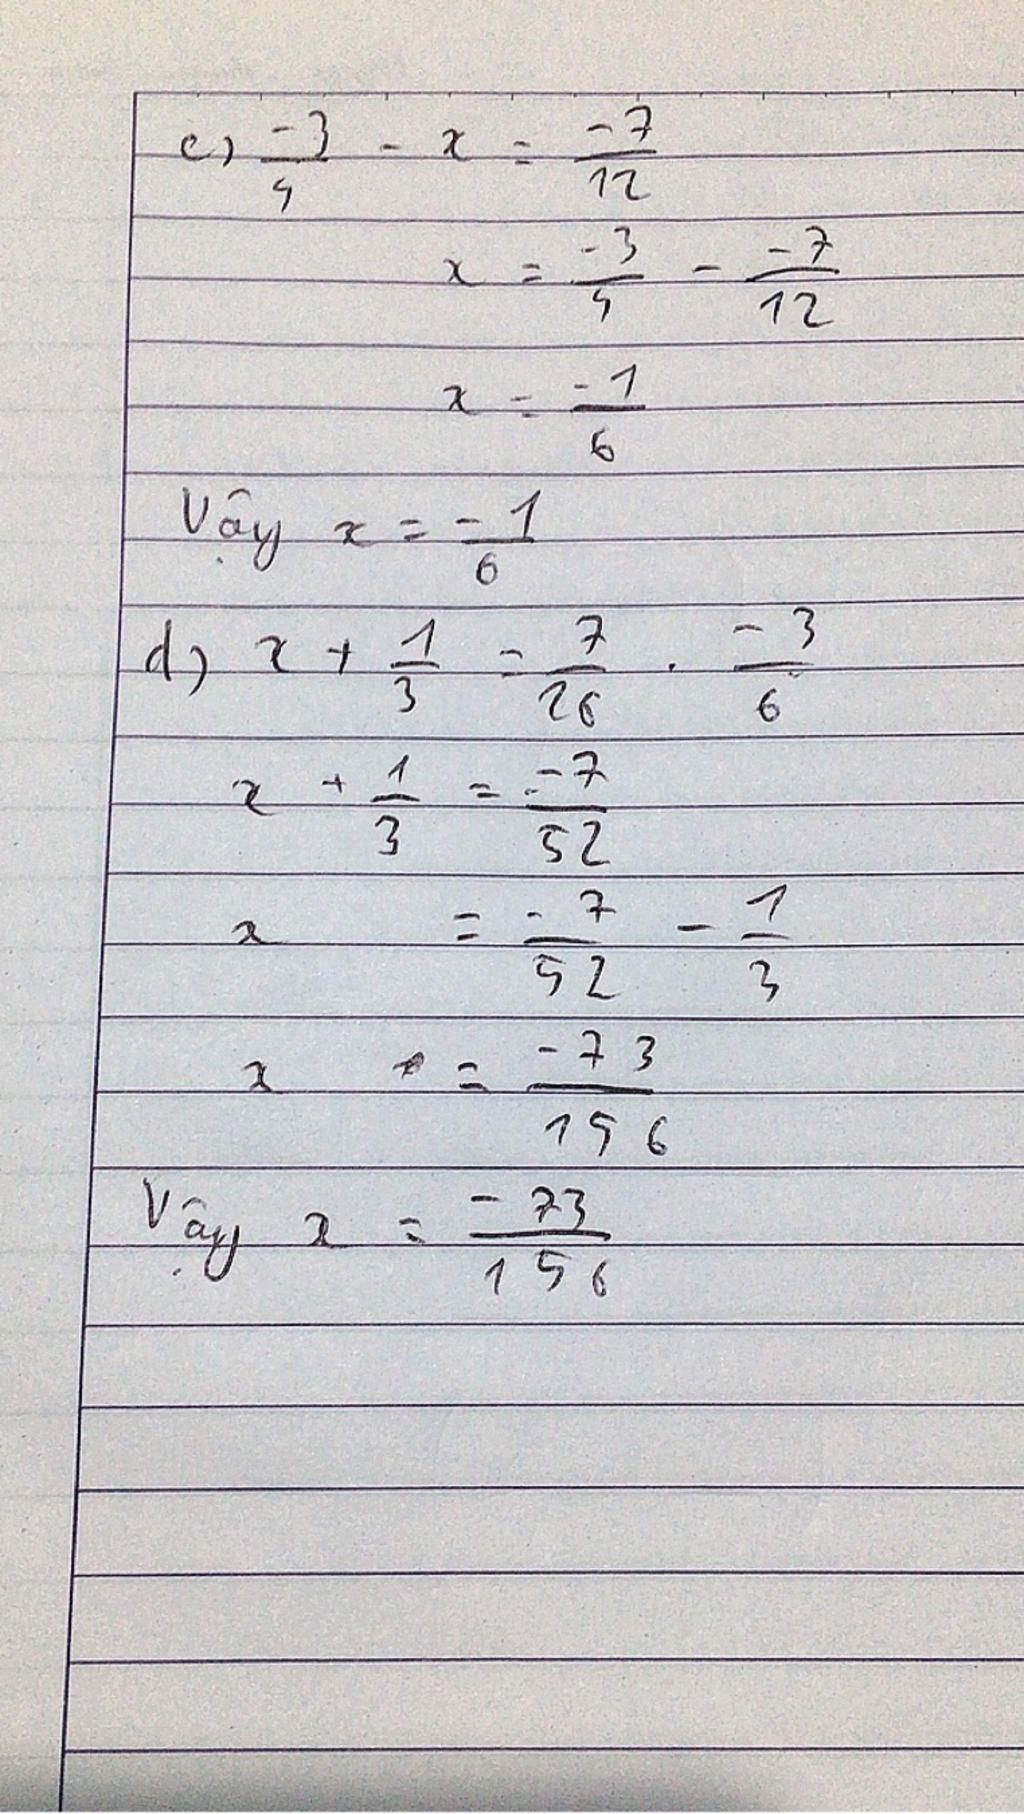 c) -3/4 - x = -7/12
x = -3/4 - -7/12
x = -1/6
Vậy x = -1/6
d) x + 1/3 = 7/26 . -3/6
x + 1/3 = -7/52
x = -7/52 - 1/3
x = -73/156
Vậy x = -73/156